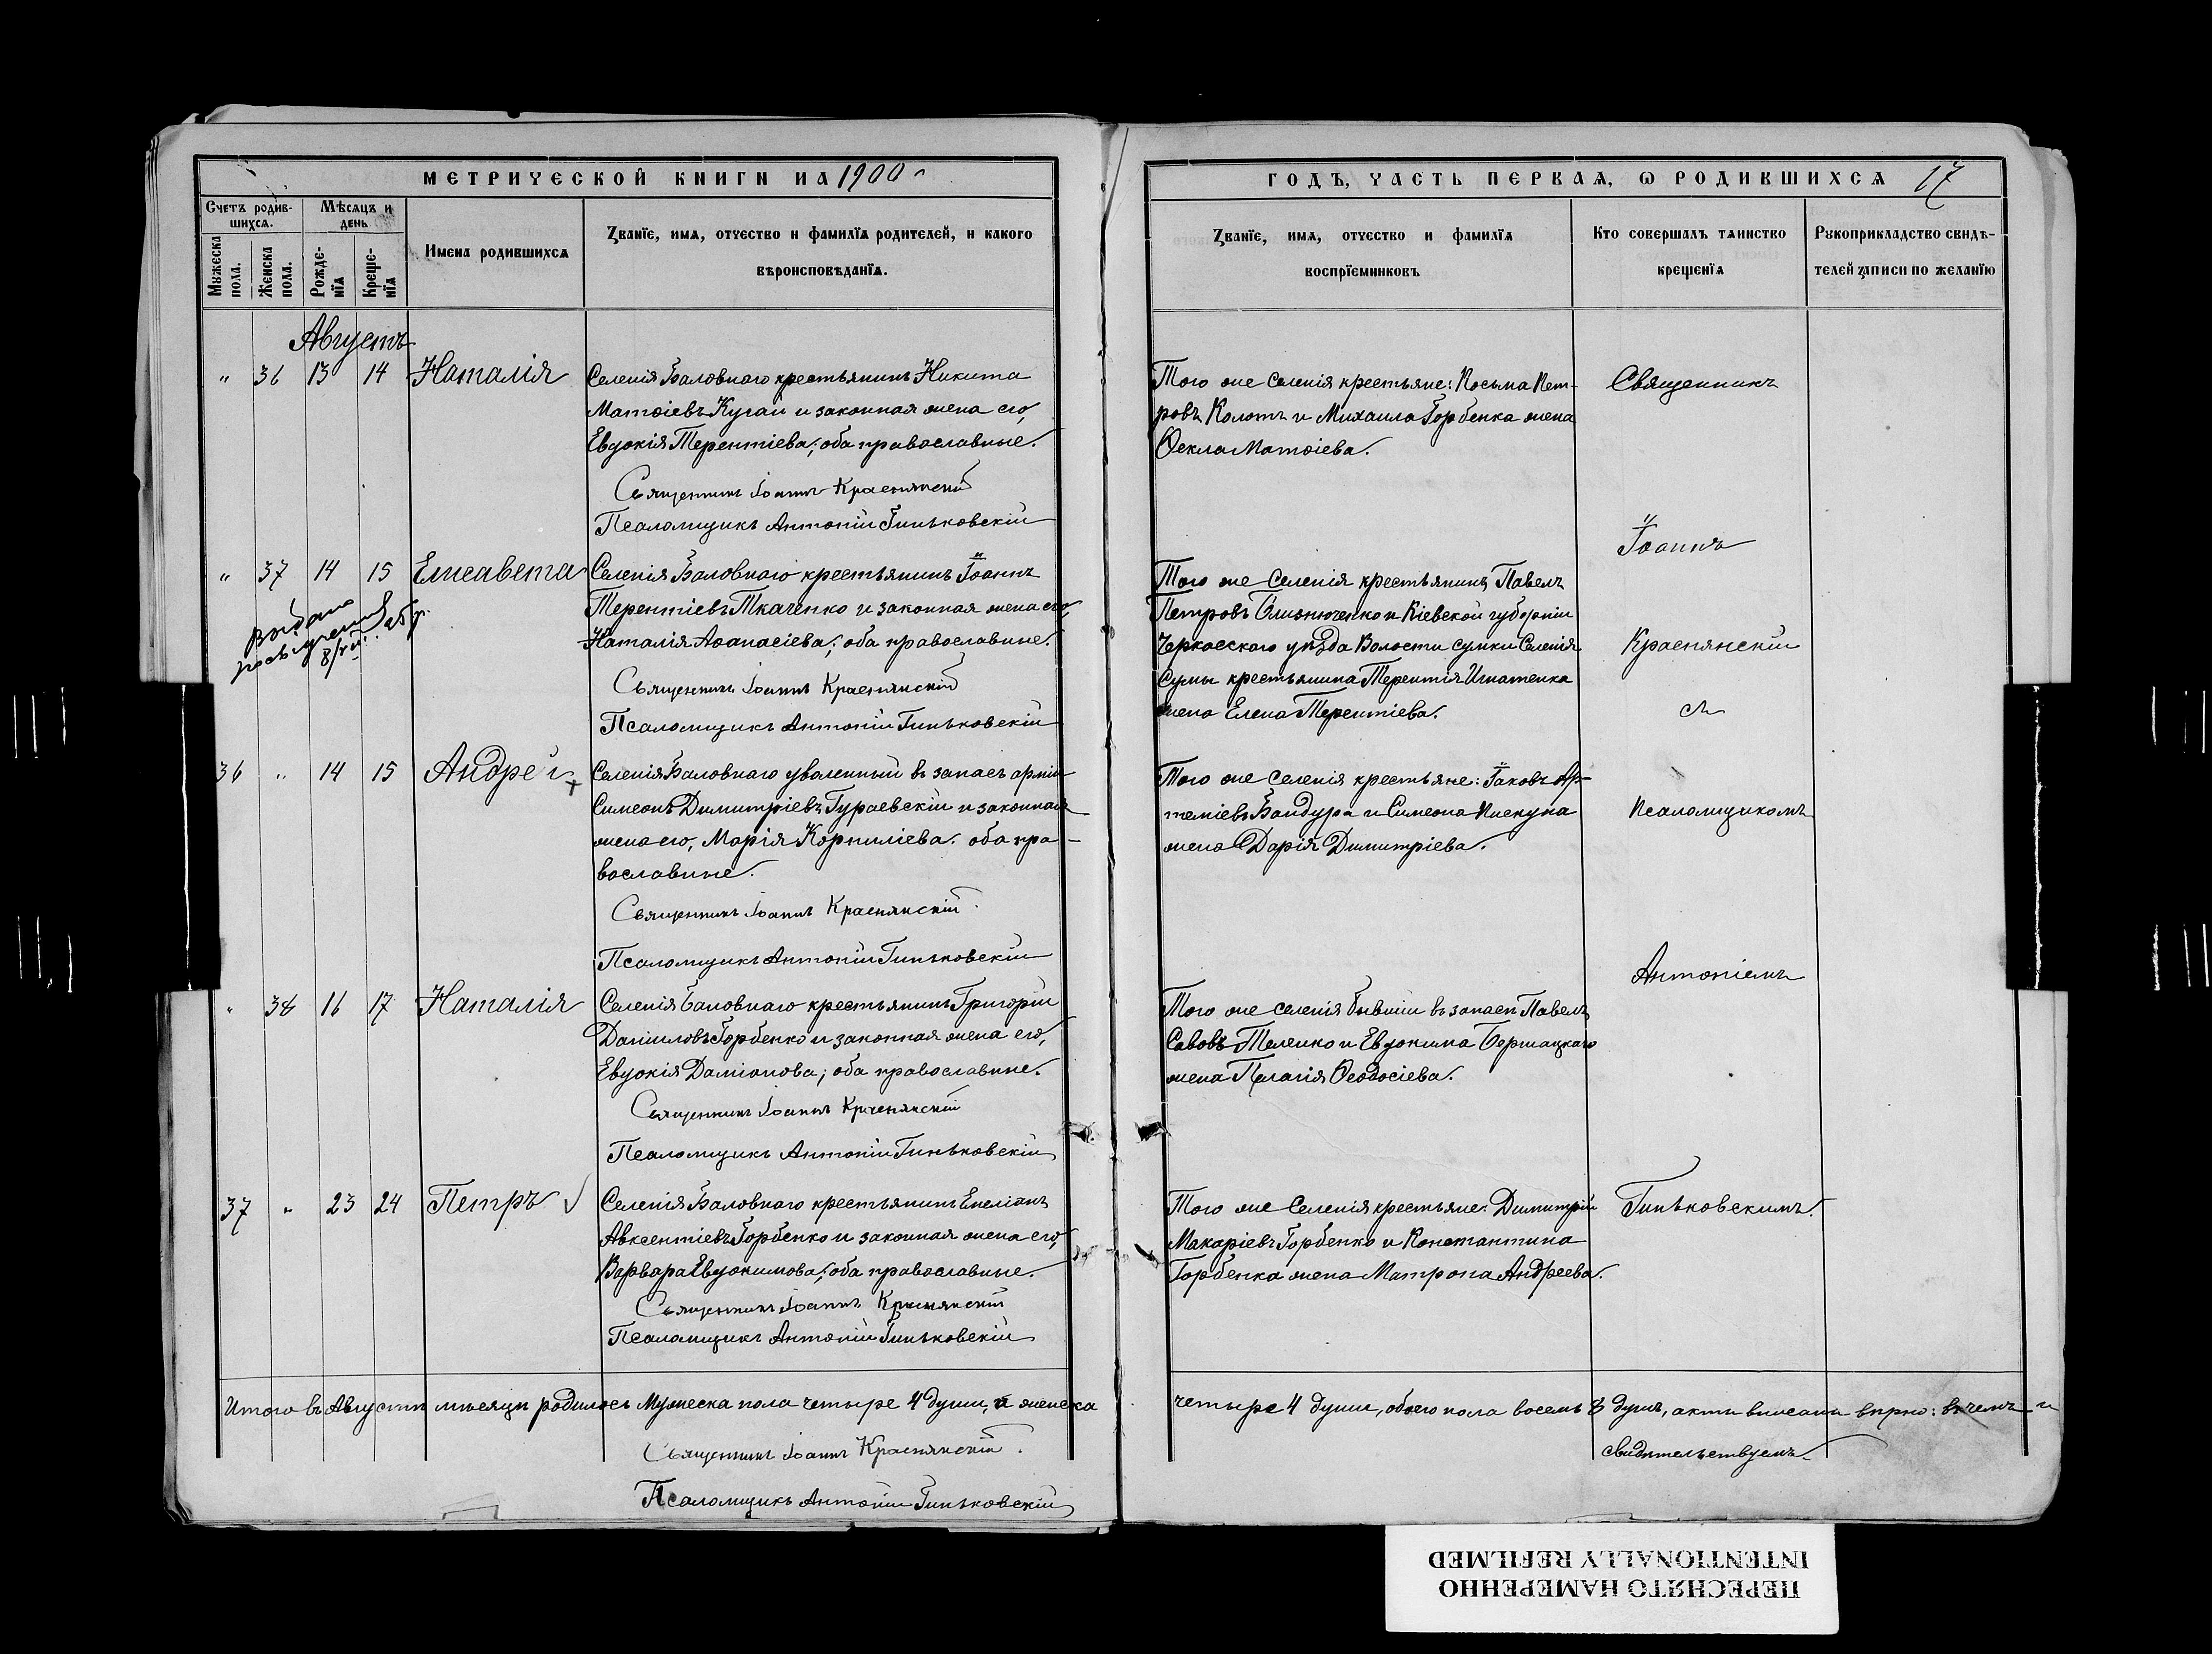 МЕТРИЧЕСКОЙ КНИГИ НА 1900 г
Счетъ родив-
шихся.
Мѣсяцъ и
день
Мужеска
пола.
Женска
пола.
Рожде-
нія
Креще-
нія
Имена родившихся
Званіе, имя, отчество и фамилія родителей, и какого
вѣроисповѣданія.
Августъ
" 36 13 14 Наталія
Селенія Баловнаго крестьянинъ Никита
Матѳіевъ Кугай и законная жена его,
Евдокія Терентіева; оба православные.
Священникъ Іоаннъ Краснянскій
Псаломщикъ Антоній Гиньковскій
" 37 14 15 Елисавета
Селенія Баловнаго крестьянинъ Іоаннъ
Терентіевъ Ткаченко и законная жена его,
Наталія Аѳанасіева; оба православные.
Священникъ Іоаннъ Краснянскій
Псаломщикъ Антоній Гиньковскій
Выдано
36 " 14 15 Андрей
Селенія Баловнаго уволенный въ запасъ арміи
Симеонъ Димитріевъ Гураевскій и законная
жена его, Марія Корниліева. оба пра-
вославные.
Священникъ Іоаннъ Краснянскій
Псаломщикъ Антоній Гиньковскій
" 38 16 17 Наталія
Селенія Баловнаго крестьянинъ Григорій
Даніиловъ Горбенко и законная жена его,
Евдокія Даміанова; оба православные.
Священникъ Іоаннъ Краснянскій
Псаломщикъ Антоній Гиньковскій
37 " 23 24 Петръ
Селенія Баловнаго крестьянинъ Емеліанъ
Авксентіевъ Горбенко и законная жена его,
Варвара Евдокимова; оба православные.
Священникъ Іоаннъ Краснянскій
Псаломщикъ Антоній Гиньковскій
Итого въ Августѣ мѣсяцѣ родилось Мужеска пола четыре 4 души, а женска
Священникъ Іоаннъ Краснянскій.
Псаломщикъ Антоній Гиньковскій
ГОДЪ, ЧАСТЬ ПЕРВАЯ, Ѡ РОДИВШИХСЯ 17
Званіе, имя, отчество и фамилія
воспріемниковъ
Кто совершалъ таинство
крещенія
Рукоприкладство свидѣ-
телей записи по желанію
Того же селенія крестьяне: Косьма Пет-
ровъ Колотъ и Михаила Горбенка жена
Ѳекла Матѳіева.
Того же Селенія крестьянинъ Павелъ
Петровъ Близнюченко и Кіевской губерніи
Черкасскаго уѣзда Волости сумки Селенія
Сумы крестьянина Терентія Игнатенка
жена Елена Терентіева.
Того же Селенія крестьяне: Іаковъ Ар-
теміевъ Бандура и Симеона Пискуна
жена Дарія Димитріева.
Того же селенія бывшій въ запасѣ Павелъ
Савовъ Теленко и Евдокима Бершацкаго
жена Пелагія Ѳеодосіева.
Того же Селенія крестьяне: Димитрій
Макаріевъ Горбенко и Константина
Горбенка жена Матрона Андреева.
Священникъ
Іоаннъ
Краснянскій
съ
Псаломщикомъ
Антоніемъ
Гиньковскимъ.
четыре 4 души, обоего пола восемь 8 душъ, акты вписаны вѣрно: въ чемъ и
свидѣтельствуемъ
ПЕРЕСНЯТО НАМЕРЕННО
INTENTIONALLY REFILMED